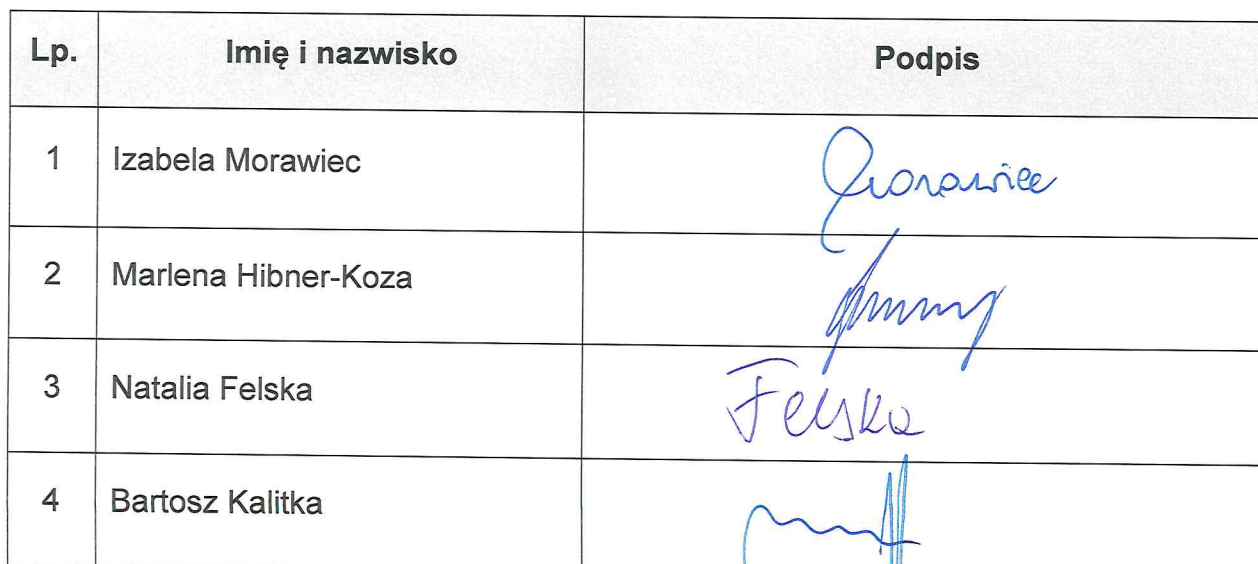 Lp. Imię i nazwisko Podpis
1 Izabela Morawiec Morawiec
2 Marlena Hibner-Koza
3 Natalia Felska Felska
4 Bartosz Kalitka